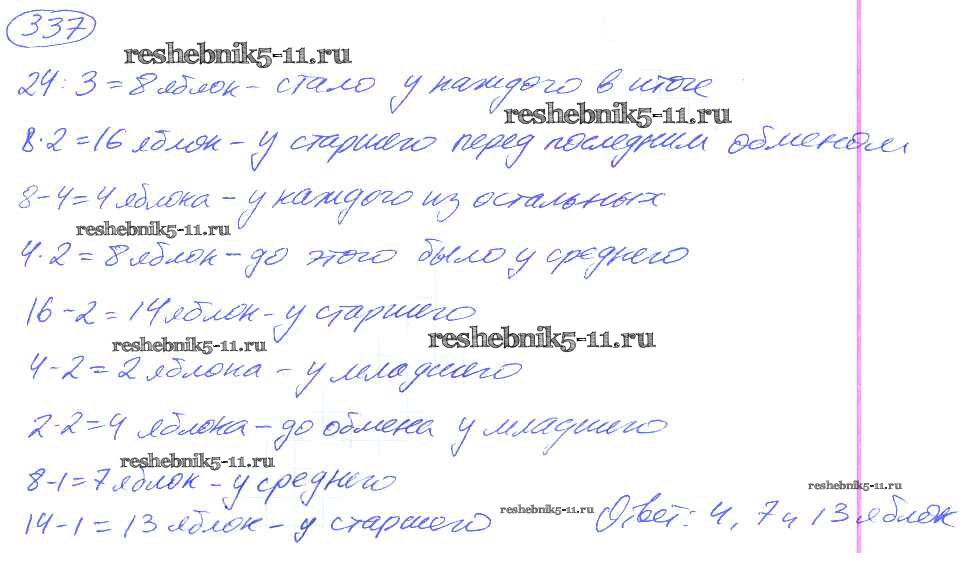 337
reshebnik5-11.ru
24:3=8 яблок - стало у каждого в итоге
reshebnik5-11.ru
8·2=16 яблок - у старшего перед последним обменом
8-4=4 яблока - у каждого из остальных
reshebnik5-11.ru
4·2=8 яблок - до этого было у среднего
16-2=14 яблок - у старшего
reshebnik5-11.ru
reshebnik5-11.ru
4-2=2 яблока - у младшего
2·2=4 яблока - до обмена у младшего
reshebnik5-11.ru
8-1=7 яблок - у среднего
reshebnik5-11.ru
14-1=13 яблок - у старшего
reshebnik5-11.ru
Ответ: 4, 7 и 13 яблок